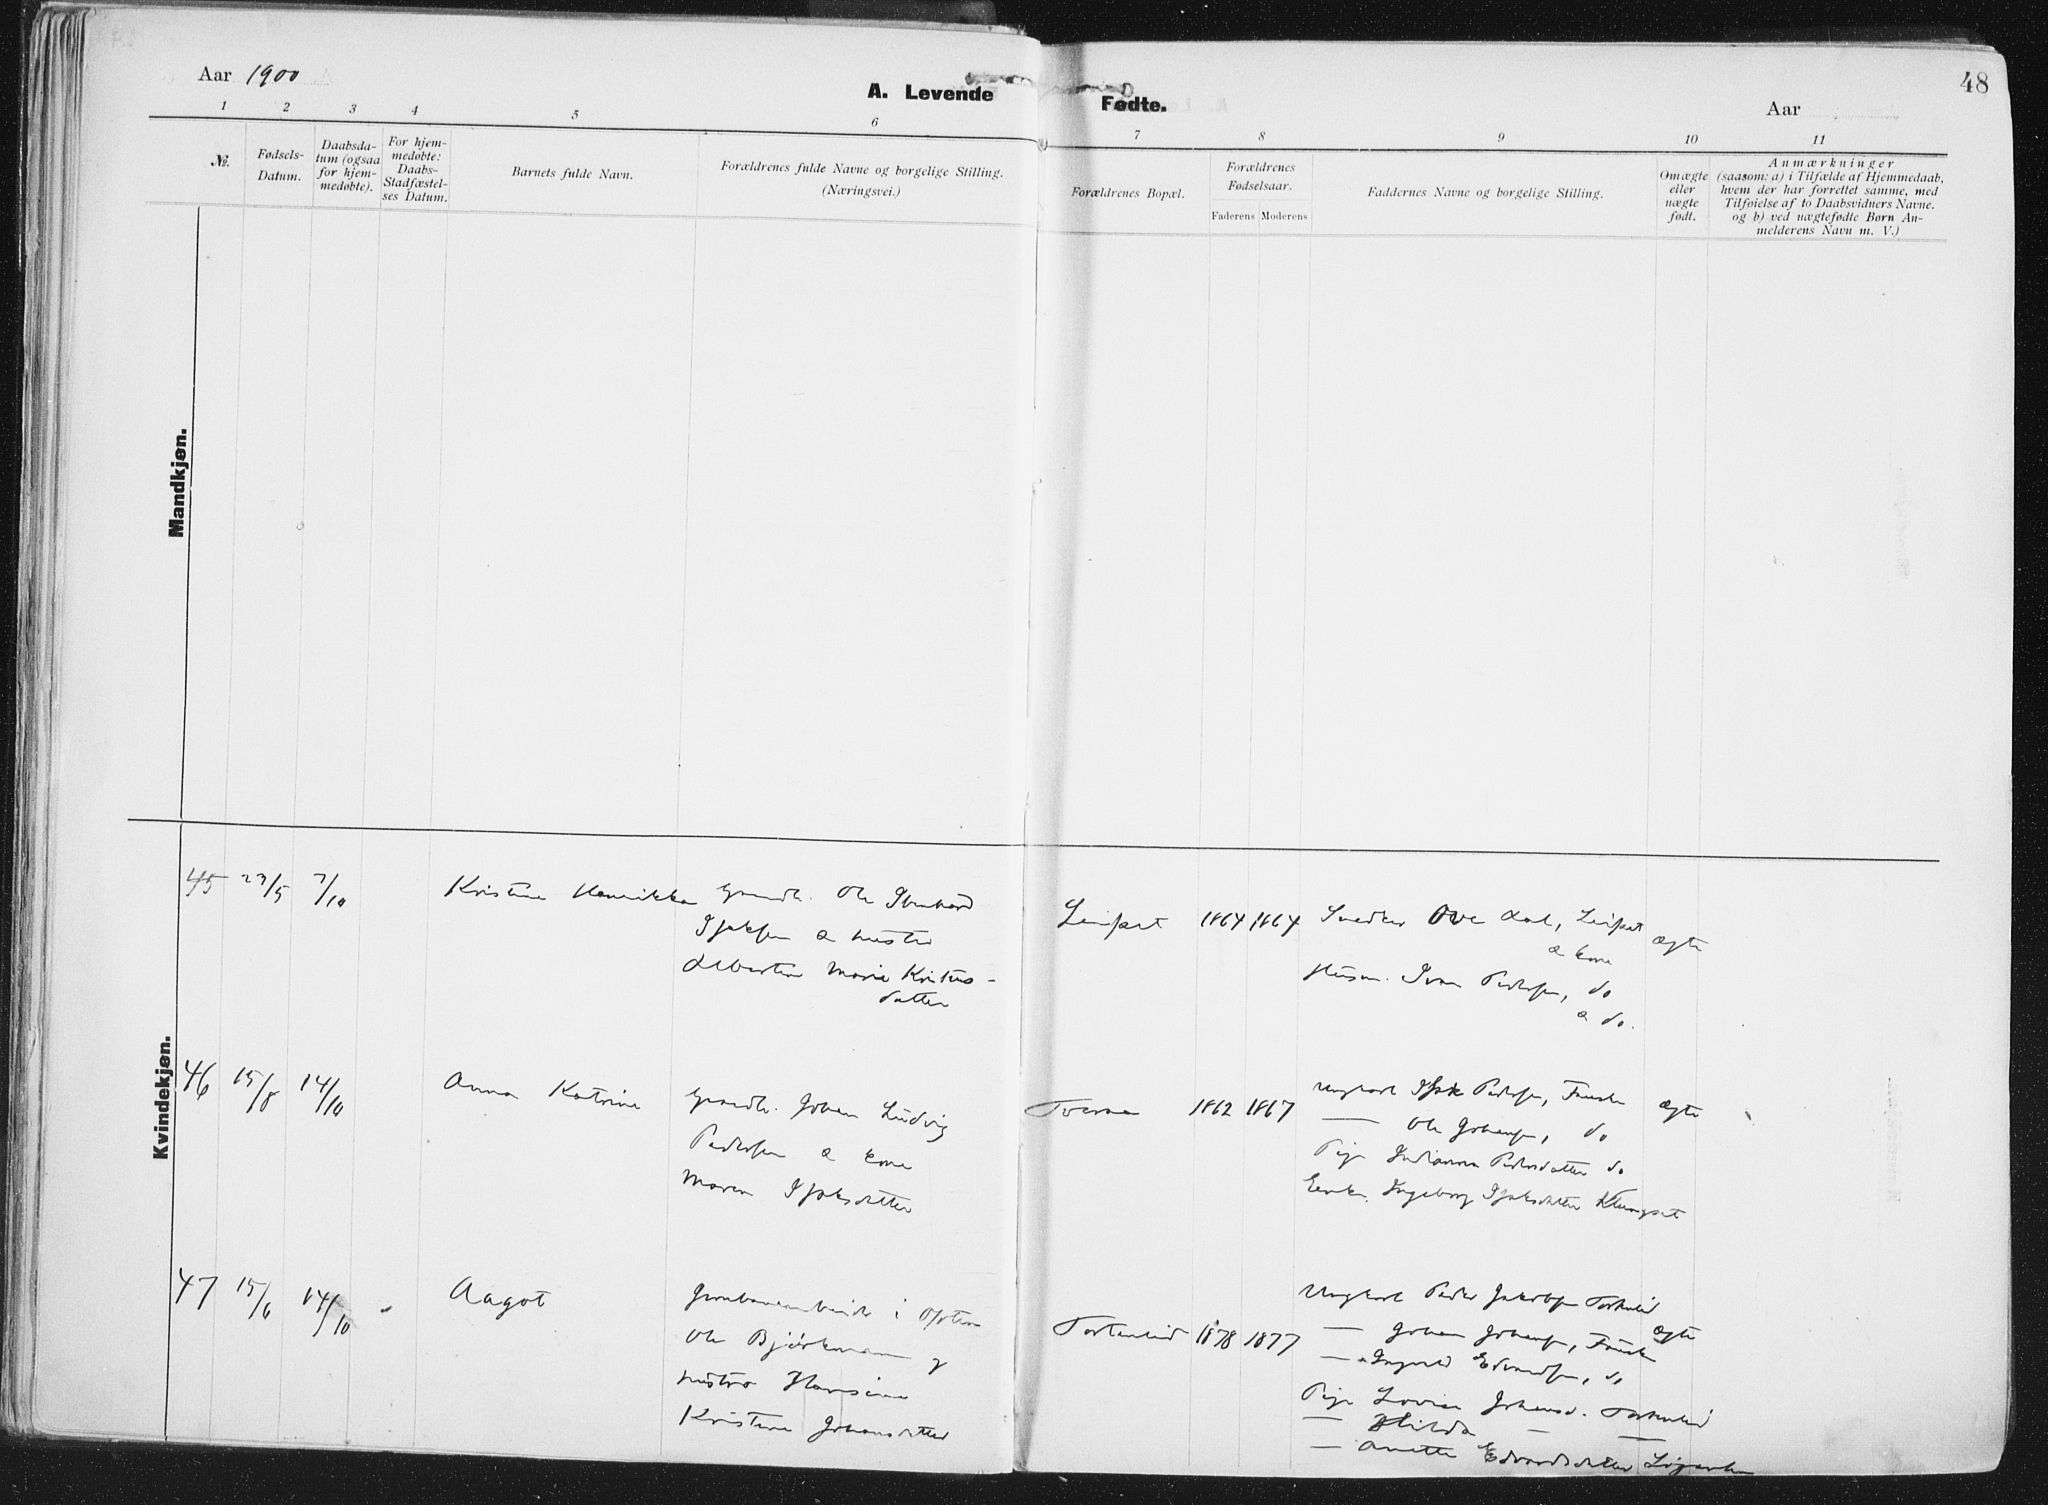 Aar 1900
A. Levende Fødte.
Aar
48
1 2 3 4 5 6 7 8 9 10 11
№.
Fødsels-
Datum.
Daabsda-
tum (ogsaa
for hjem-
medøbte).
For hjem-
medøbte:
Daabs-
Stadfæstel-
ses Datum.
Barnets fulde Navn.
Forældrenes fulde Navne og borgelige Stilling.
(Næringsvei.)
Forældrenes Bopæl.
Forældrenes
Fødselsaar.
Faderens Moderens
Faddernes Navne og borgelige Stilling.
Omægte
eller
uægte
født.
Anmærkninger
(saasom: a) i Tilfælde af Hjemmedaab,
hvem der har forrettet samme, med
Tilføielse af to Daabsvidners Navne.
og b) ved uægtefødte Børn An-
melderens Navn m. V.)
Mandkjøn.
Kvindekjøn.
45 27/5 7/10
Kristine Henrikka
Gaardb. Ole
& hustru
Albertine Marie
datter
Leifset 1864 1864
Snedker Ove Dahl, Leifset
& kone
Husm. Pedersen, do
& do.
ægte
46 15/8 14/10
Anna Katrine
Gaardb. Johan Ludvig
Pedersen & kone
Maren Isaksdatter
Tveraa 1862 1867
Ungkarl Isak Pedersen, Fauske
— Ole Johansen, do
Pige Indianna Pedersdatter do
Enke. Ingeborg Isaksdatter Klungset
ægte
47 15/6 14/10
Aagot
Jernbanearbeider i
Ole Bjørkmann og
hustru Hansine
Kristine Johansdatter
1878 1877
Ungkarl Peder Jakobsen
— Johan Johansen, Fauske
— Ingvald Edvardsen, do
Pige Lovise Johansd.
— Hilda — —
— Anette Edvardsdatter
ægte